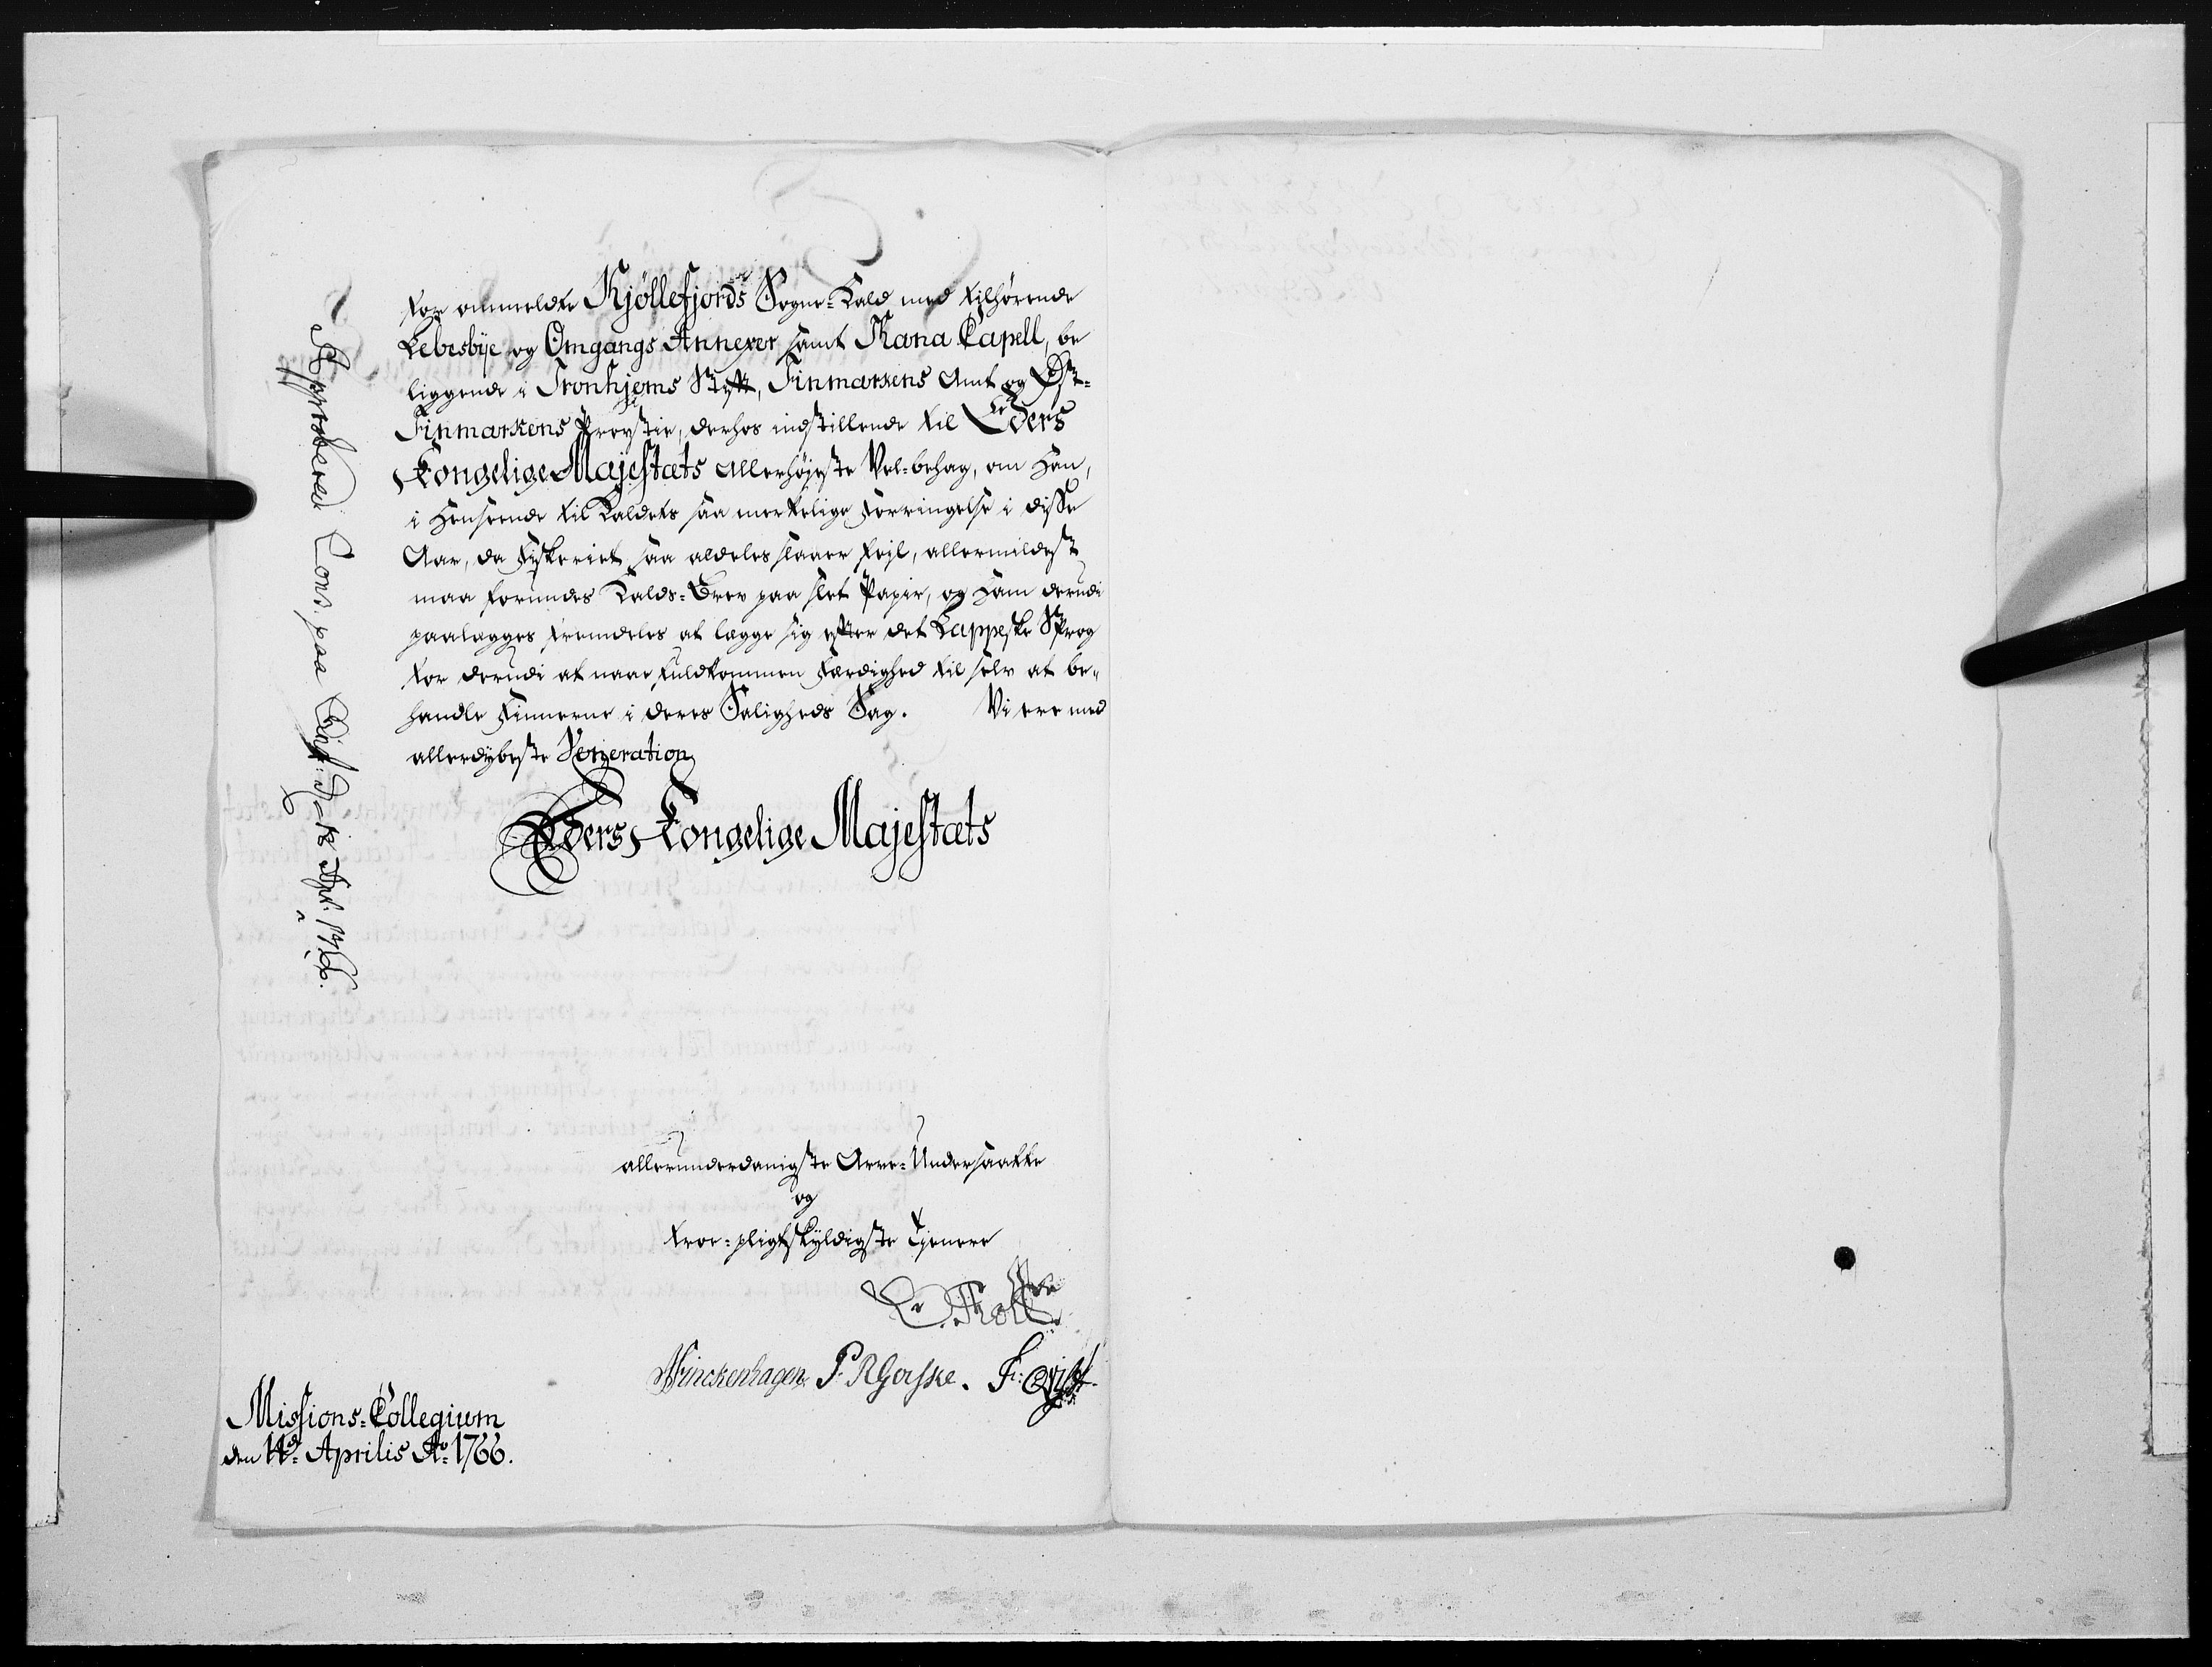 for ommeldte Kjøllefjords Sogne-Kald med tilhørende
Lebesbÿe og Omgangs Annexer samt Thana Capell, be
liggende i Tronhjems Stift, Finmarkens Amt og Øst-
Finmarkens Provstie, derhos indstillende til Eders
Kongelige Majestæts allerhøjeste Vel-behag, om Han,
i Henseende til Kaldets saa merkelige Forringelse i disse
Aar, da Fiskeriet saa aldeles slaaer fejl, allermildest
maa forundes Kalds-Brev paa slet Papir, og Ham derudi
paalægges fremdeles at lægge sig efter det Lappeske Sprog
for derudi at naae fuldkommen Færdighed til selv at be-
handle Finnerne i deres Saligheds Sag. Vi ere med
allerdybeste Veneration
Eders Kongelige Majestæts
allerunderdanigste Arve-Undersaatte
og
troe-pligtskyldigste Tjenere
Tholle
Finckenhagen P. R Gorske. Fr: Qvist
Missions-Collegium
den 11te Aprilis Ao 1766.
Approberes Cons: paa Christ: d: 18 Apr: 1766.